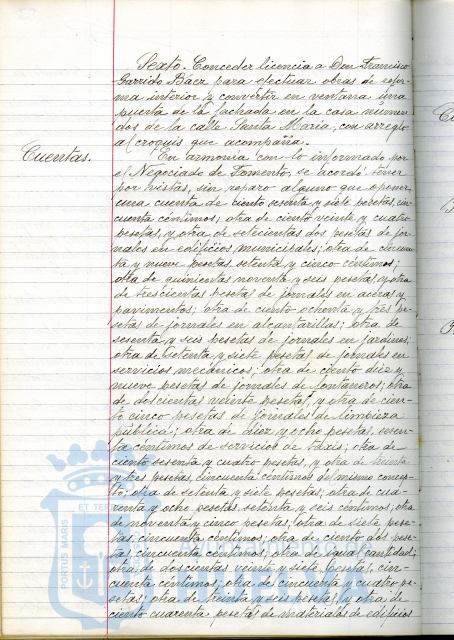 Sexto. Conceder licencia a Don Francisco
Garrido Baez para efectuar obras de refor-
ma interior y convertir en ventana una
puerta de la fachada en la casa número
dos de la calle Santa María, con arreglo
al croquis que acompaña.
Cuentas.
En armonía con lo informado por
el Negociado de Fomento, se acordó tener
por vistas, sin reparo alguno que oponer,
una cuenta de ciento sesenta y siete pesetas, cin-
cuenta céntimos; otra de ciento veinte y cuatro
pesetas, y otra de setecientas dos pesetas de jor-
nales en edificios municipales; otra de cincuen-
ta y nueve pesetas setenta y cinco céntimos;
otra de quinientas noventa y seis pesetas, y otra
de trescientas pesetas de jornales en aceras y
pavimentos; otra de ciento ochenta y tres pe-
setas de jornales en alcantarillas; otra de
sesenta y seis pesetas de jornales en jardines;
otra de setenta y siete pesetas de jornales en
servicios mecánicos; otra de ciento diez y
nueve pesetas de jornales de fontaneros; otra
de doscientas veinte pesetas, y otra de cien-
to cinco pesetas de jornales de limpieza
pública; otra de diez y ocho pesetas, sesen-
ta céntimos de servicios de taxis; otra de
ciento sesenta y cuatro pesetas, y otra de treinta
y tres pesetas, cincuenta céntimos del mismo concep-
to; otra de setenta y siete pesetas; otra de cua-
renta y ocho pesetas, setenta y seis céntimos; otra
de noventa y cinco pesetas; otra de siete pese-
tas, cincuenta céntimos; otra de ciento dos pese-
tas, cincuenta céntimos; otra de igual cantidad;
otra de doscientas veinte y siete pesetas, cin-
cuenta céntimos; otra de cincuenta y cuatro pe-
setas; otra de treinta y seis pesetas, y otra de
ciento cuarenta pesetas de materiales de edificios
PORTUS MARIS ET TER